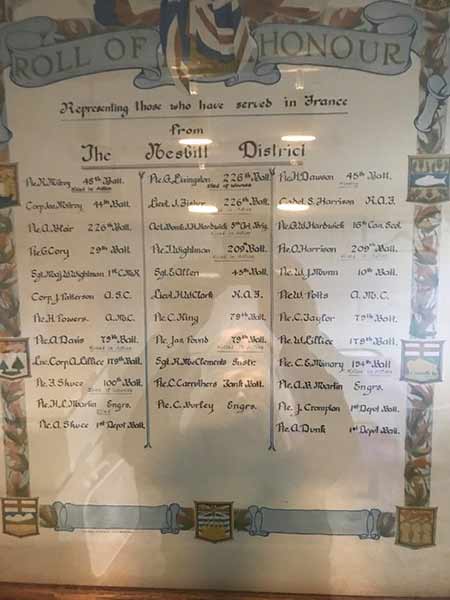 ROLL OF HONOUR
Representing those who have served in France
from
The Nesbitt District
Pte. R. Milroy 45th Batt.
Killed in Action
Corp. Jas. Milroy 44th Batt.
Pte. A. Blair 226th Batt.
Pte. G. Cory 29th Batt.
Sgt. Maj. W. Wightman 1st C.M.R.
Corp. J. Patterson A.S.C.
Pte. H. Powers A.M.C.
Pte. A. Davis 79th Batt.
Killed in Action
Lnc. Corp. A. Lillice 179th Batt.
Pte. F. Shuce 100th Batt.
Died of Wounds
Pte. H. L. Martin Engrs.
Pte. A. Shuce 1st Depot Batt.
Pte. G. Livingston 226th Batt.
Died of Wounds
Lieut. J. Fisher 226th Batt.
Killed in Action
Act. Bomb. H. Hardwick 5th Art. Brig.
Killed in Action
Pte. T. Wightman 209th Batt.
Killed in Action
Sgt. E. Allen 45th Batt.
Lieut. H. W. Clark R.A.F.
Pte. C. King 79th Batt.
Pte. Jas. Pound 79th Batt.
Killed in Action
Sgt. H. MacClements
Pte. L. Carruthers Tank Batt.
Pte. C. Burley Engrs.
Pte. H. Dawson 45th Batt.
Missing
Cadet S. Harrison R.A.F.
Pte. A. W. Hardwick 16th Can. Scot.
Pte. O. Harrison 209th Batt.
Killed in Action
Pte. W. J. Munn 10th Batt.
Pte. W. Potts A.M.C.
Pte. C. Taylor 79th Batt.
Pte. W. Lillice 179th Batt.
Pte. C. E. Minary 184th Batt.
Killed in Action
Pte. A. B. Martin Engrs.
Pte. J. Crompton 1st Depot Batt.
Pte. A. Dunk 1st Depot Batt.